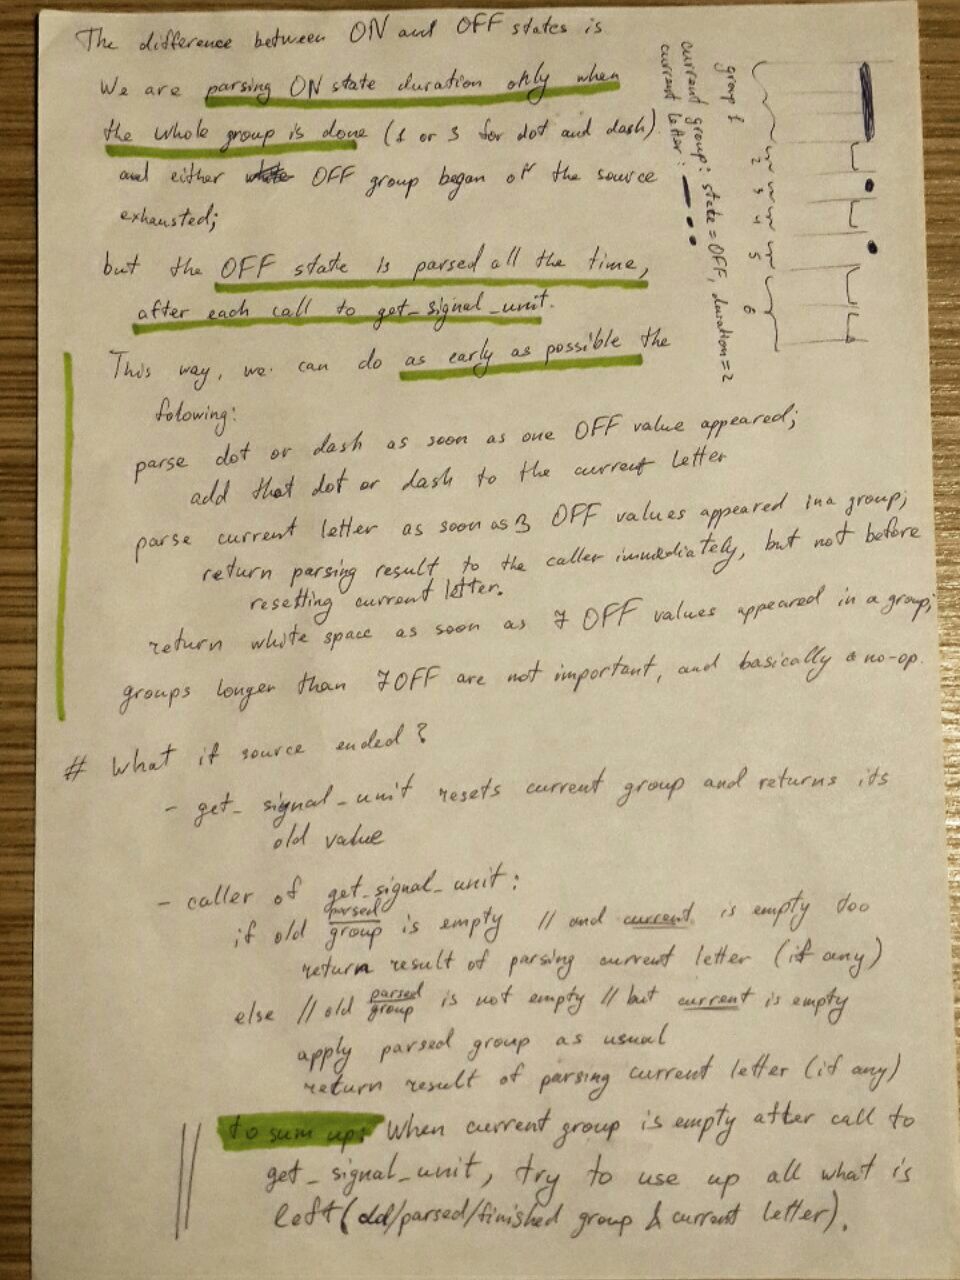 The difference between ON and OFF states is
We are parsing ON state duration only when
the whole group is done (1 or 3 for dot and dash)
and either OFF group began or the source
exhausted;
but the OFF state is parsed all the time,
after each call to get_signal_unit.
This way, we can do as early as possible the
folowing:
parse dot or dash as soon as one OFF value appeared;
add that dot or dash to the current letter
parse current letter as soon as 3 OFF values appeared in a group;
return parsing result to the caller immediately, but not before
resetting current letter.
return white space as soon as 7 OFF values appeared in a group;
groups longer than 7 OFF are not important, and basically a no-op.
# What if source ended?
- get_signal_unit resets current group and returns its
old value
- caller of get_signal_unit:
if old parsed group is empty // and current is empty too
return result of parsing current letter (if any)
else // old parsed group is not empty // but current is empty
apply parsed group as usual
return result of parsing current letter (if any)
to sum up: When current group is empty after call to
get_signal_unit, try to use up all what is
left (old/parsed/finished group & current letter).
group 1 2 3 4 5 6
current group: state = OFF, duration = 2
current letter: — • •